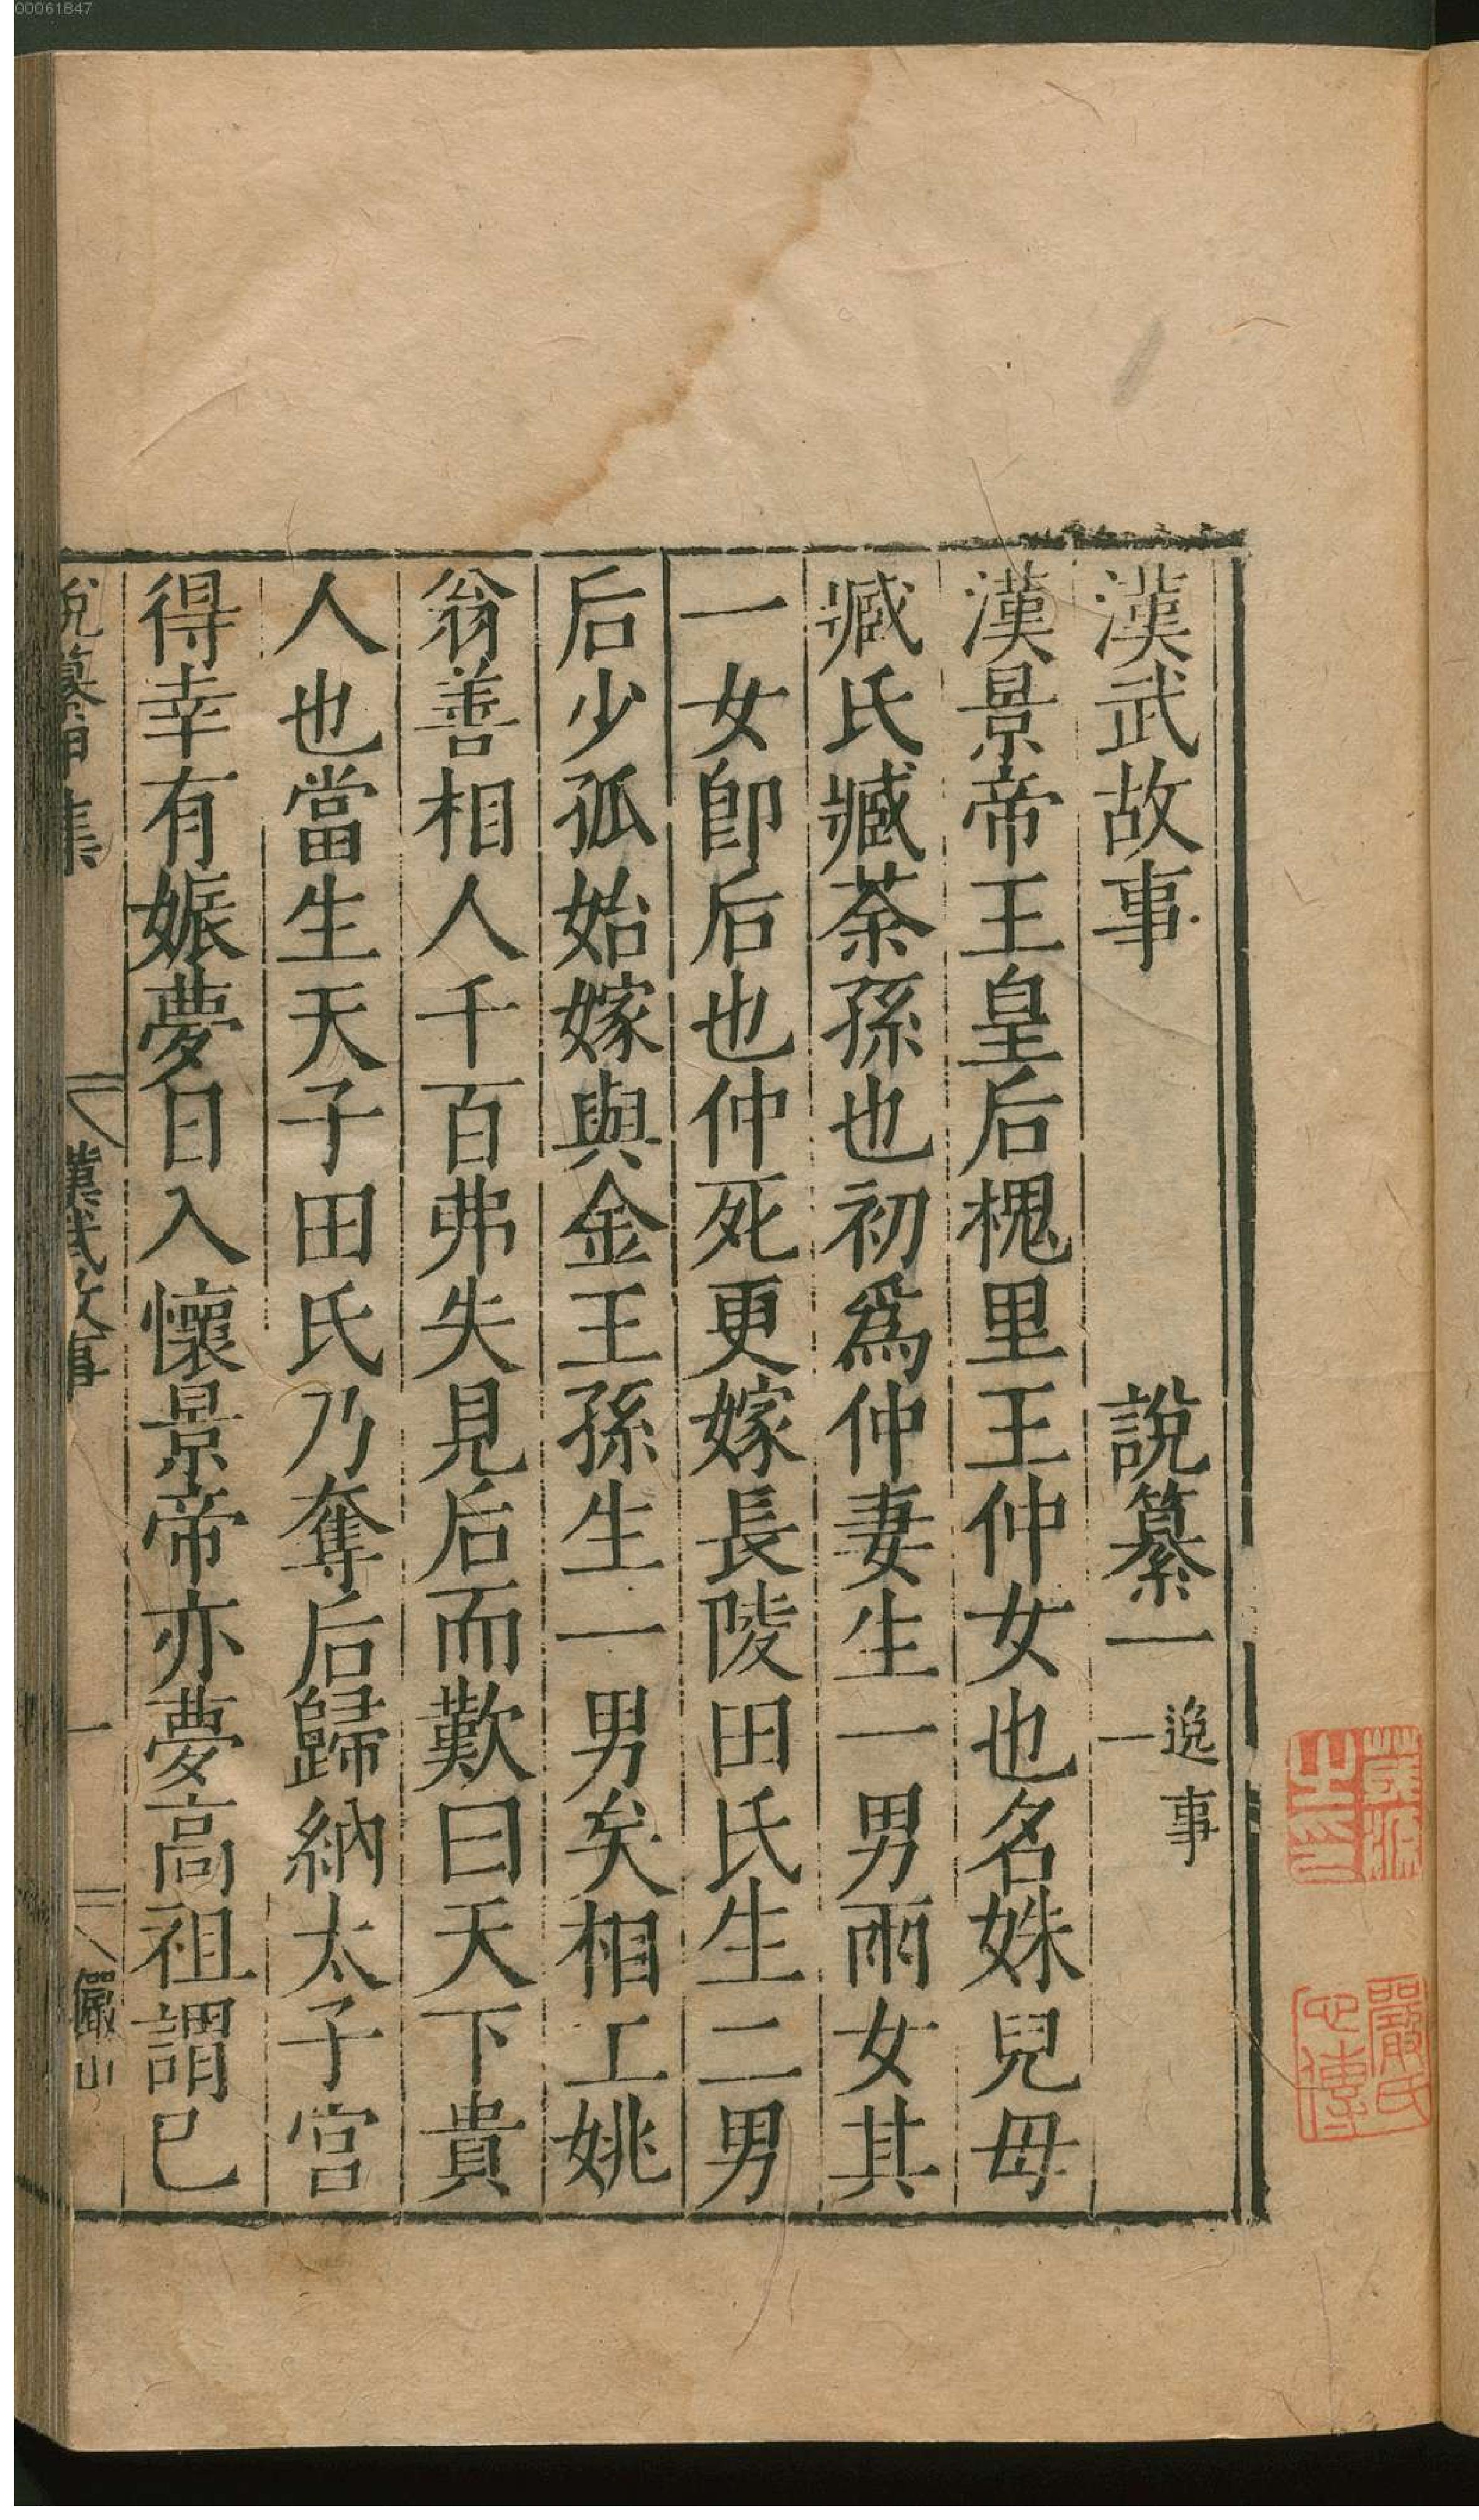 00061847
漢武故事 說纂一 逸事一
漢景帝王皇后槐里王仲女也名姝兒母
臧氏臧荼孫也初爲仲妻生一男兩女其
一女卽后也仲死更嫁長陵田氏生二男
后少孤始嫁與金王孫生一男矣相工姚
翁善相人千百弗失見后而歎曰天下貴
人也當生天子田氏乃奪后歸納太子宮
得幸有娠夢日入懷景帝亦夢高祖謂己
說纂甲集 漢武故事 一 儼山
嚴氏